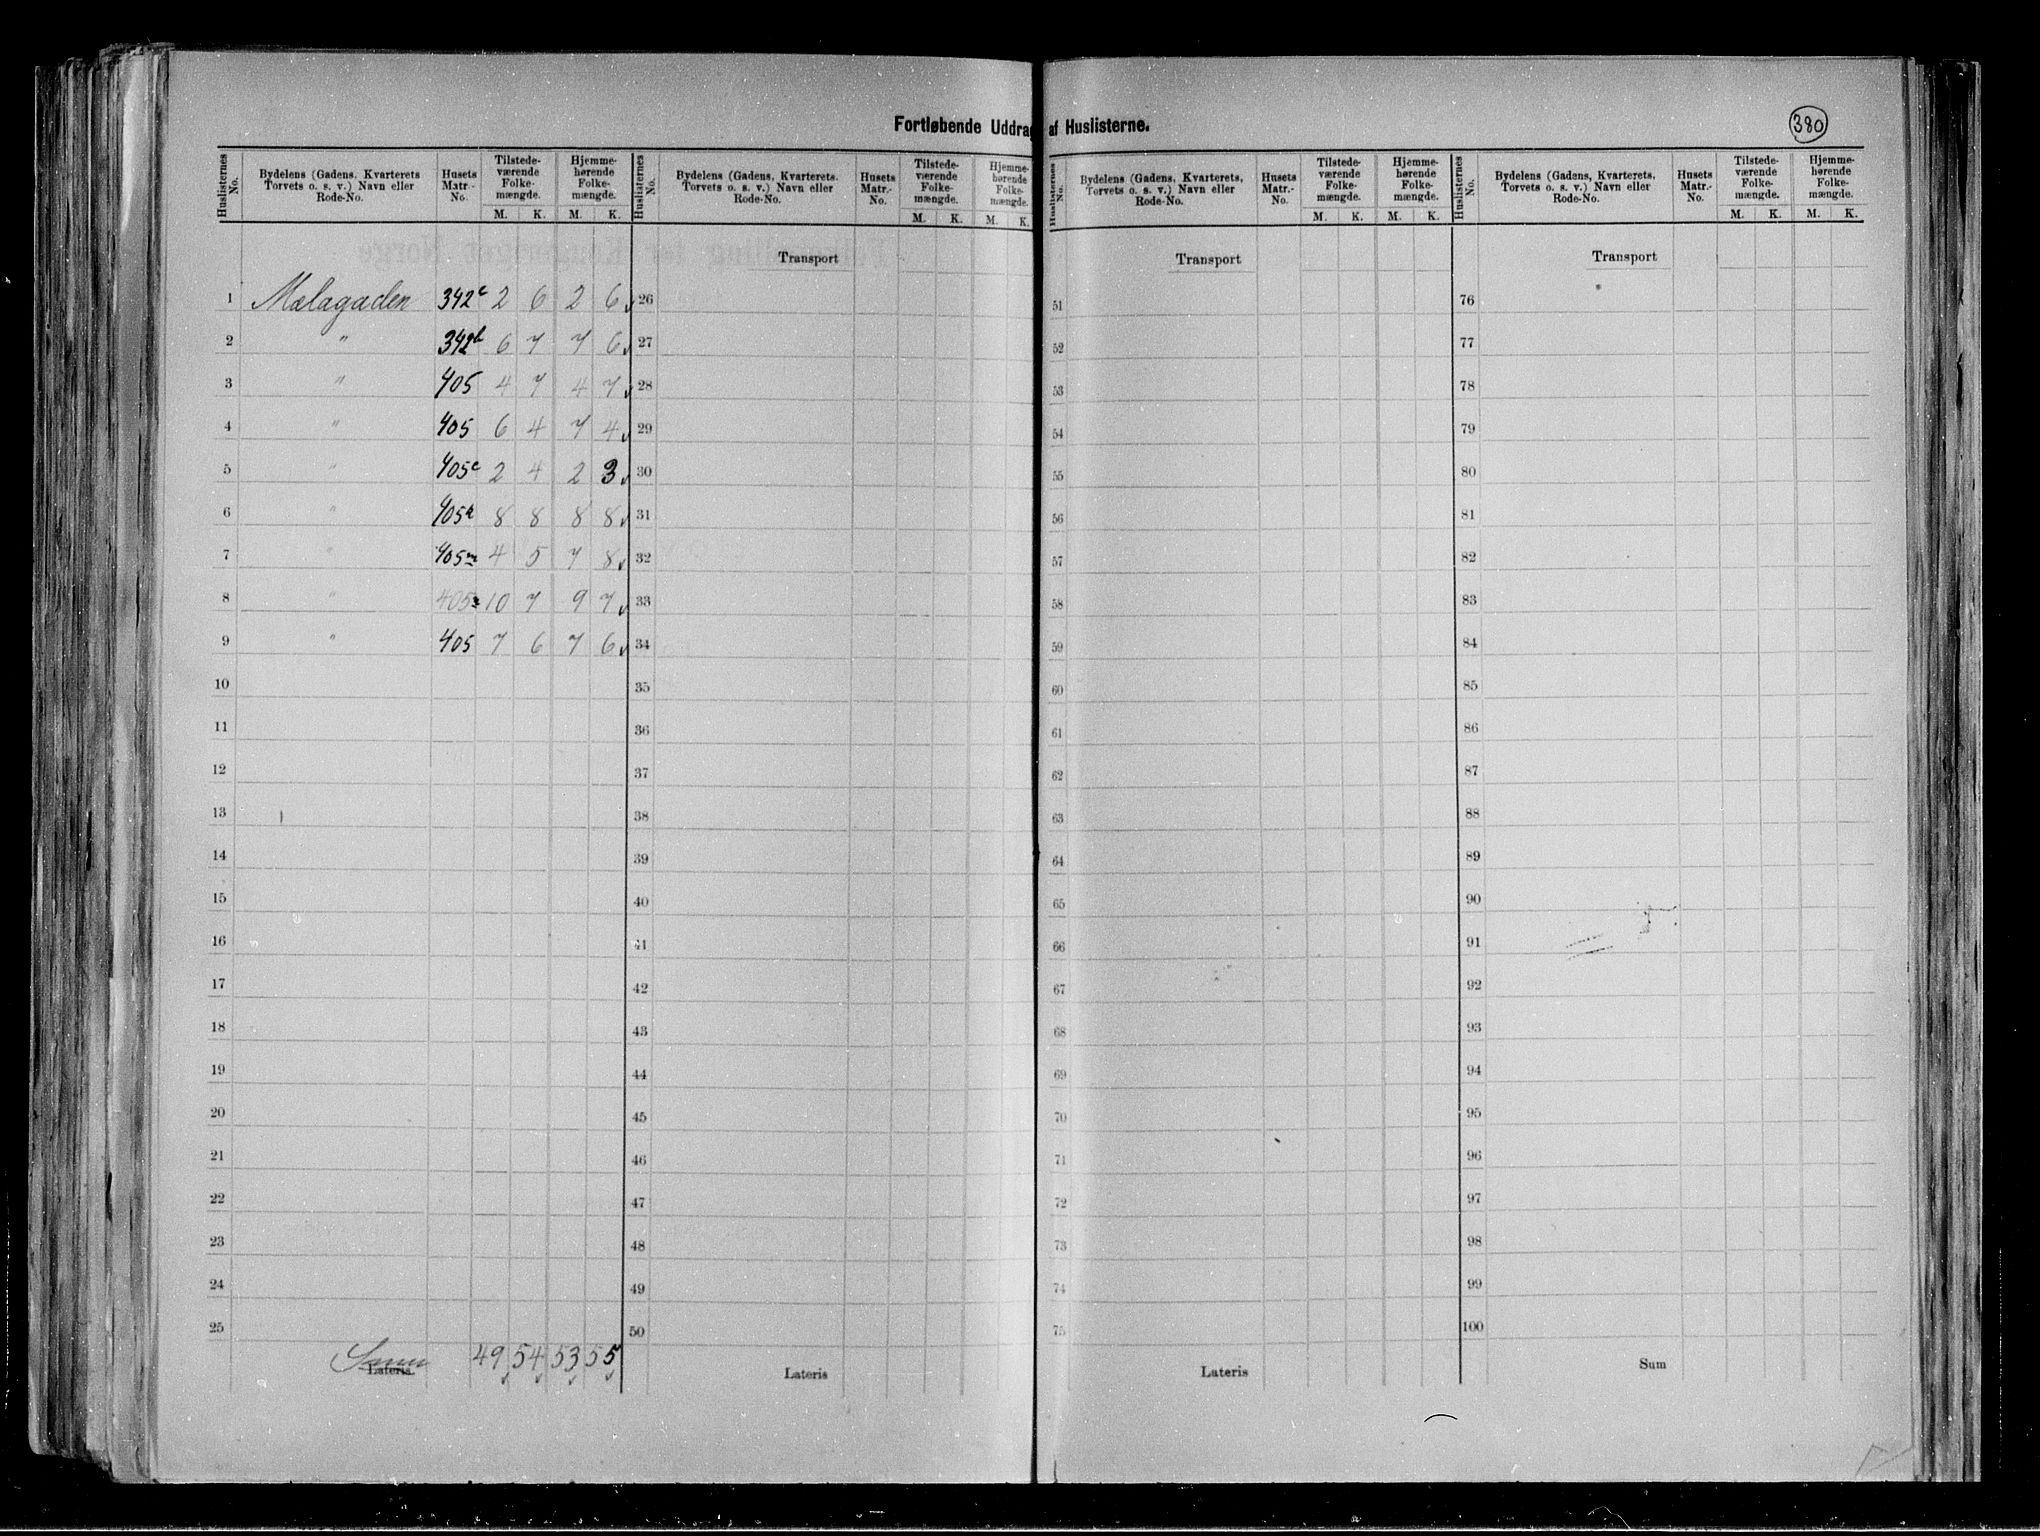 Fortløbende Uddrag af Huslisterne.
380
Huslisternes No. | Bydelens (Gadens, Kvarterets, Torvets o. s. v.) Navn eller Rode-No. | Husets Matr.-No. | Tilstede-værende Folke-mængde. M. K. | Hjemme-hørende Folke-mængde. M. K.
Huslisternes No. | Bydelens (Gadens, Kvarterets, Torvets o. s. v.) Navn eller Rode-No. | Husets Matr.-No. | Tilstede-værende Folke-mængde. M. K. | Hjemme-hørende Folke-mængde. M. K.
Huslisternes No. | Bydelens (Gadens, Kvarterets, Torvets o. s. v.) Navn eller Rode-No. | Husets Matr.-No. | Tilstede-værende Folke-mængde. M. K. | Hjemme-hørende Folke-mængde. M. K.
Huslisternes No. | Bydelens (Gadens, Kvarterets, Torvets o. s. v.) Navn eller Rode-No. | Husets Matr.-No. | Tilstede-værende Folke-mængde. M. K. | Hjemme-hørende Folke-mængde. M. K.
Transport Transport Transport
1 Mælagaden 342c 2 6 2 6 26 51 76
2 " 342b 6 7 7 6 27 52 77
3 " 405 4 7 4 7 28 53 78
4 " 405 6 4 7 4 29 54 79
5 " 405c 2 4 2 3 30 55 80
6 " 405 8 8 8 8 31 56 81
7 " 405m 4 5 7 8 32 57 82
8 " 405 10 7 9 7 33 58 83
9 " 405 7 6 7 6 34 59 84
10 35 60 85
11 36 61 86
12 37 62 87
13 38 63 88
14 39 64 89
15 40 65 90
16 41 66 91
17 42 67 92
18 43 68 93
19 44 69 94
20 45 70 95
21 46 71 96
22 47 72 97
23 48 73 98
24 49 74 99
25 50 75 100
Lateris Summ 49 54 53 55 Lateris Lateris Sum